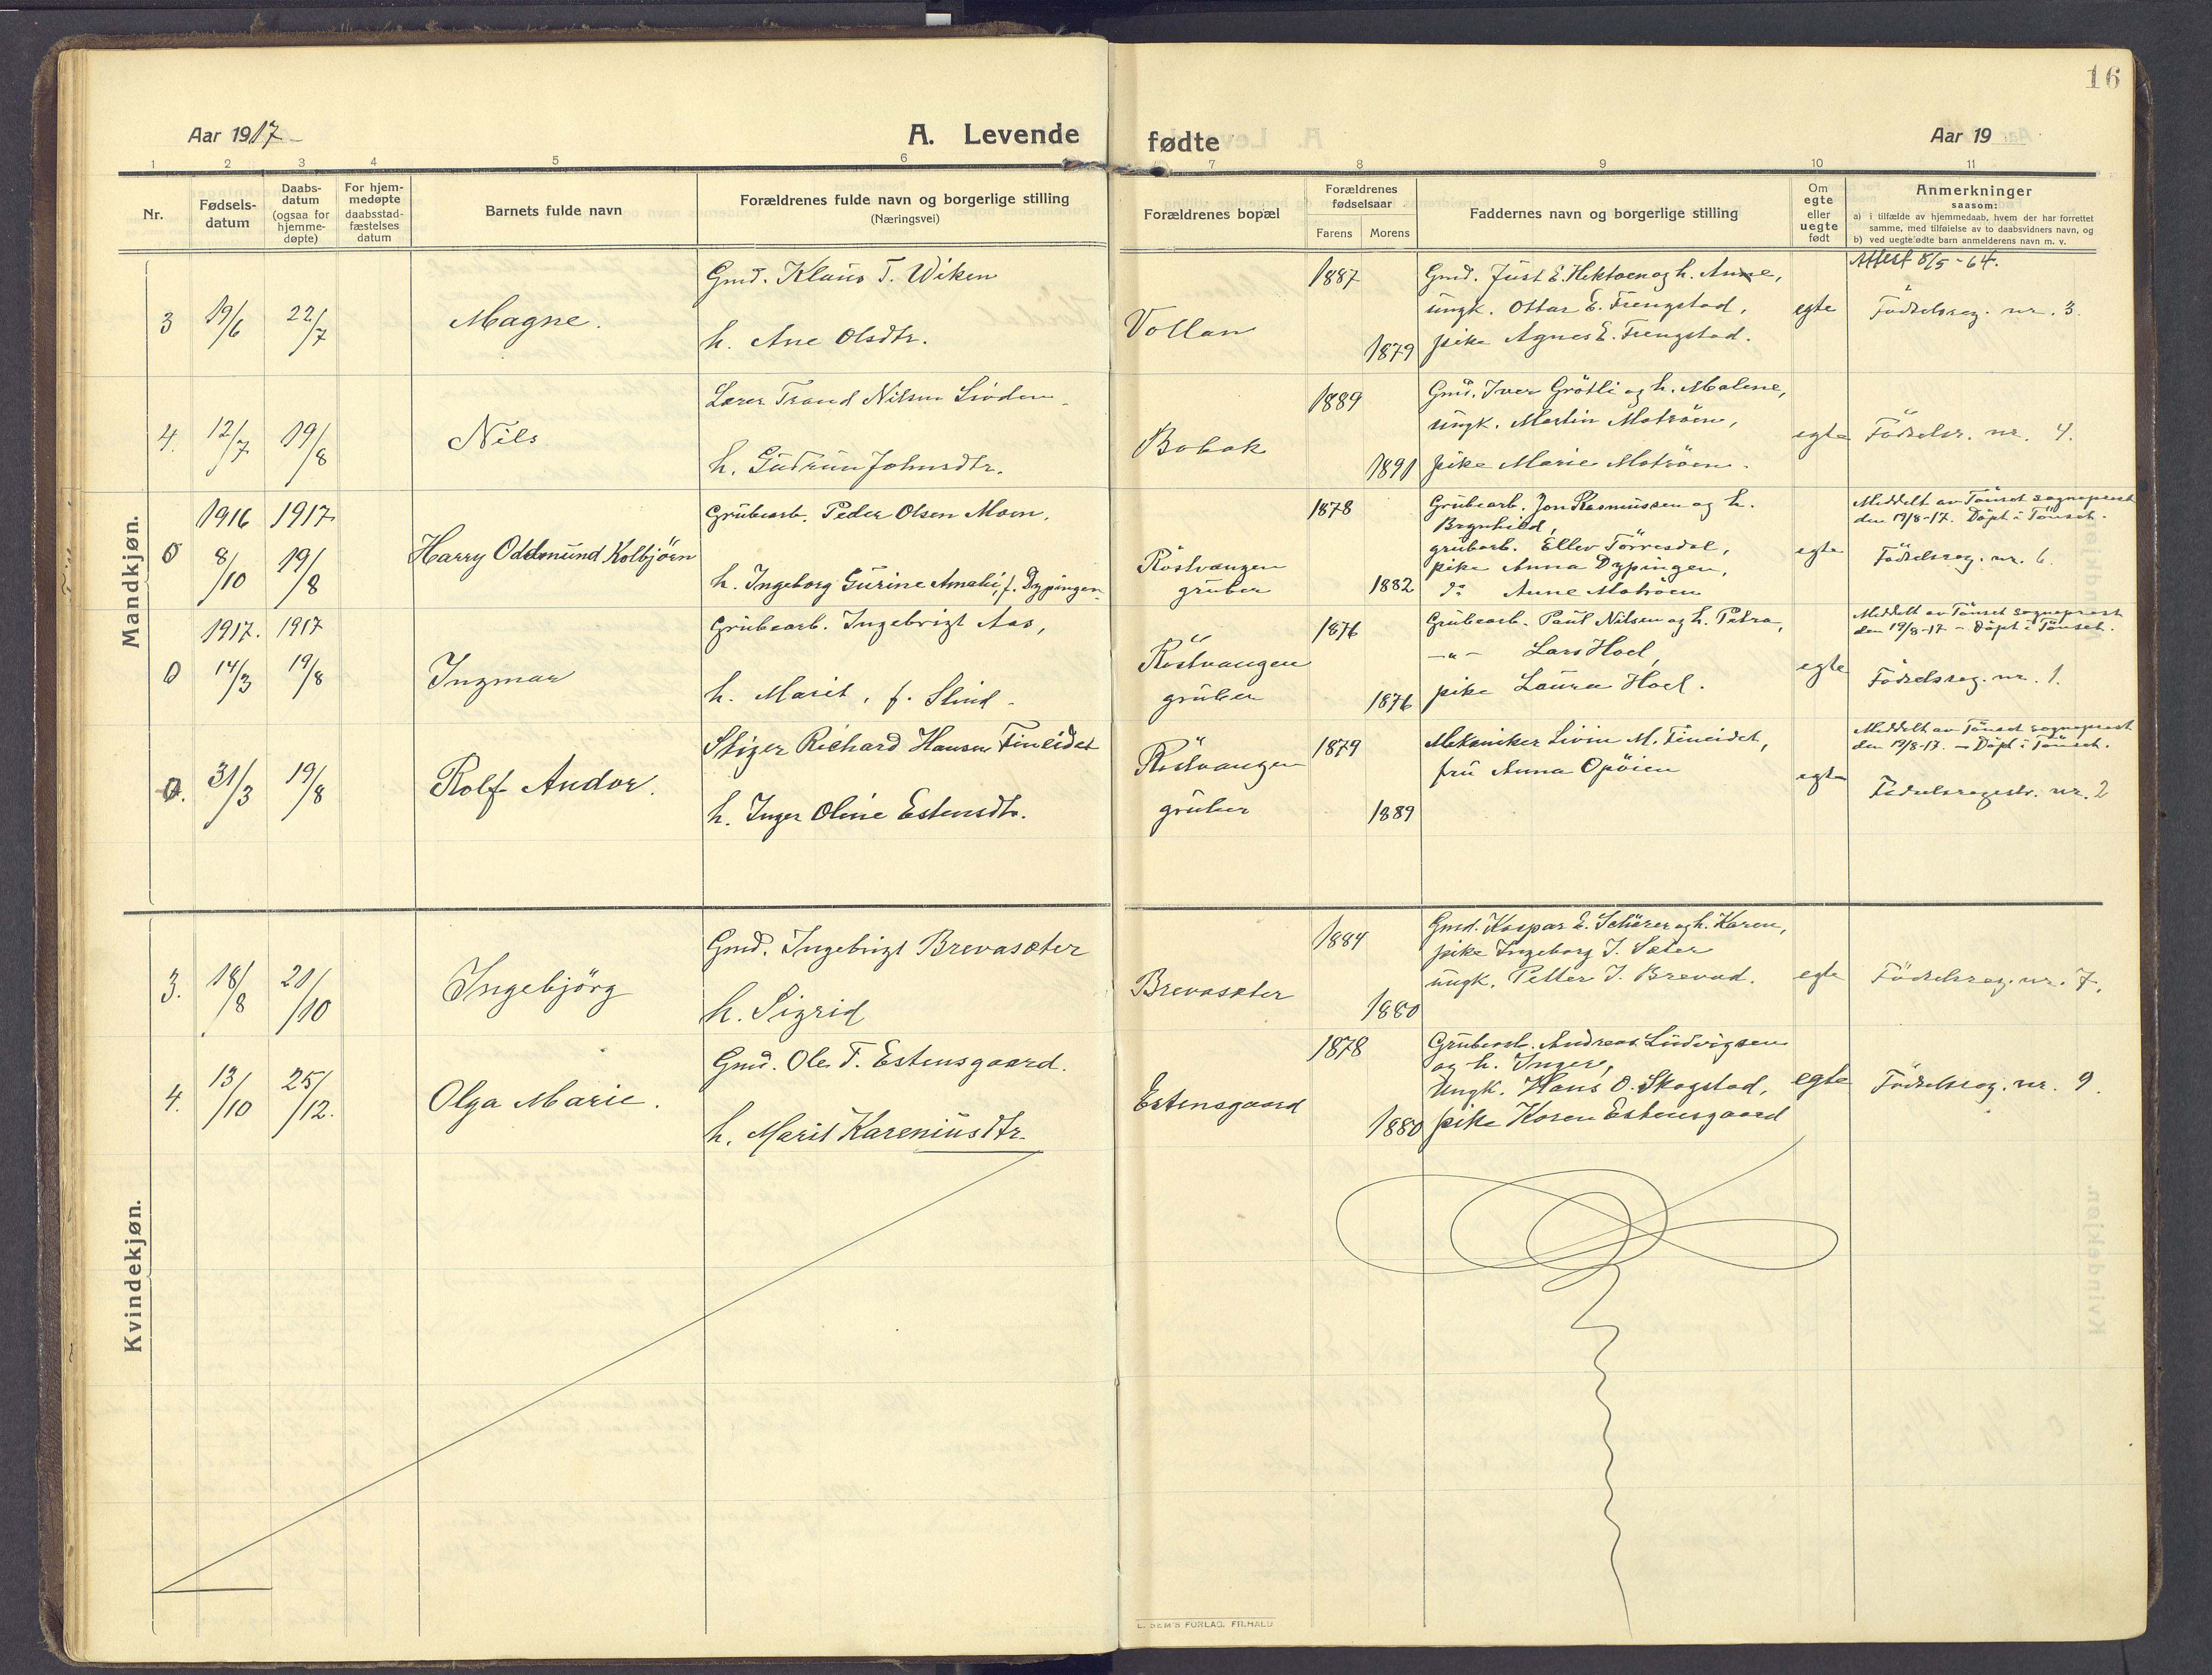 16
Aar 1917
A. Levende
fødte
Aar 19
1 2 3 4 5 6 7 8 9 10 11
Nr.
Fødsels-
datum
Daabs-
datum
(ogsaa for
hjemme-
døpte)
For hjem-
medøpte
daabsstad-
fæstelses
datum
Barnets fulde navn
Forældrenes fulde navn og borgerlige stilling
(Næringsvei)
Forældrenes bopæl
Forældrenes
fødselsaar
Farens Morens
Faddernes navn og borgerlige stilling
Om
egte
eller
uegte
født
Anmerkninger
saasom:
a) i tilfælde av hjemmedaab, hvem der har forrettet
samme, med tilføielse av to daabsvidners navn, og
b) ved uegte fødte barn anmelderens navn m. v.
Mandkjøn.
3
19/6
22/7
Magne.
Gmd. Klaus T. Wiken
h. Ane Olsdtr.
Vollan
1887
1879
Gmd. Just E. Hektoen og h. Anne,
ungk. Ottar E. Frengstad,
pike Agnes E. Frengstad.
egte
Attest 8/5-64.
Fødselsreg. nr. 3.
4.
12/7
19/8
Nils
Lærer Trond Nilsen
h. Gudrun Johnsdtr.
Bobak
1889
1891
Gmd. Iver Grötli og h. Malene,
ungk. Martin Moträen,
pike Marie Moträen.
egte
Födselsr. nr. 4.
0
1916
8/10
1917
19/8
Harry Oddmund Kolbjörn
Grubearb. Peder Olsen Moen,
h. Ingeborg Gurine Amalie, f. Dypingen
Röstvangen
gruber
1878
1882
Grubearb. Jon Rasmussen og h.
Brynhild,
grubarb. Ellev Törresdal,
pike Anna Dypingen,
do Anne Moträen
egte
Meddelt av Tönset sogneprest
den 19/8-17. Döpt i Tönset.
Födselsreg. nr. 6.
0
1917.
14/3
1917
19/8
Ingmar
Grubearb. Ingebrigt Aas,
h. Marit, f. Slind.
Röstvangen
gruber
1876
1876
Grubearb. Paul Nilsen og h. Petra,
-"- Lars Hoel,
pike Laura Hoel.
egte
Meddelt av Tönset sogneprest
den 19/8-17 - Döpt i Tönset.
Födselsreg. nr. 1.
0.
31/3
19/8
Rolf Andor.
Stiger Richard Hansen Fineidet
h. Inger Oline Estensdtr.
Röstvangen
gruber
1879
1889
Mekaniker M. Fineidet,
fru Anna Opöien
egte
Meddelt av Tönset sogneprest
den 19/8-17. - Döpt i Tönset.
Födselsregistr. nr. 2
Kvindekjøn.
3.
18/8
21/10
Ingebjörg
Gmd. Ingebrigt Brevasæter
h. Sigrid
Brevasæter
1884
1880
Gmd. Kaspar E. og h. Karen,
pike Ingeborg I. Sæter
ungk. Petter I. Brevad.
egte
Födselsreg. nr. 7.
4.
13/10
25/12.
Olga Marie.
Gmd. Ole T. Estensgaard.
h. Marit Kareniusdtr.
Estensgaard
1878
1880
Grubearb. Andreas Ludvigsen
og h. Inger,
Ungk. Hans O. Skogstad,
pike Karen Estensgaard
egte
Födselsreg. nr. 9.
E. SEM'S FORLAG, FR.HALD